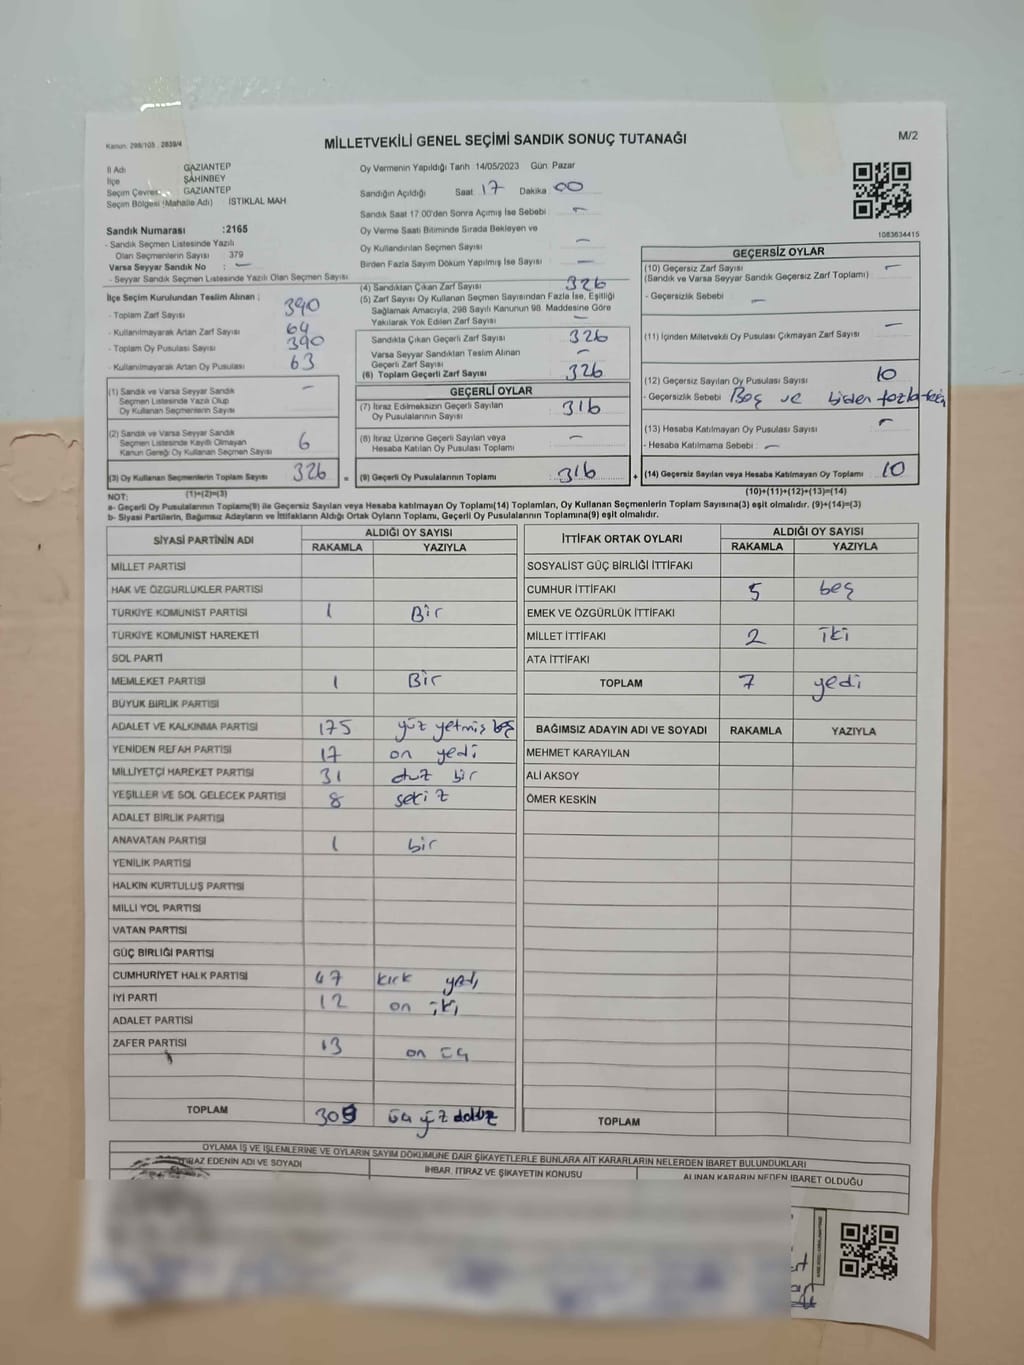 Kanun: 298/105 , 2839/4
MİLLETVEKİLİ GENEL SEÇİMİ SANDIK SONUÇ TUTANAĞI
M/2
İl Adı GAZİANTEP
İlçe ŞAHİNBEY
Seçim Çevresi GAZİANTEP
Seçim Bölgesi (Mahalle Adı) İSTİKLAL MAH
Sandık Numarası :2165
- Sandık Seçmen Listesinde Yazılı
Olan Seçmenlerin Sayısı 379
Varsa Seyyar Sandık No : -
- Seyyar Sandık Seçmen Listesinde Yazılı Olan Seçmen Sayısı
İlçe Seçim Kurulundan Teslim Alınan ;
- Toplam Zarf Sayısı 390
- Kullanılmayarak Artan Zarf Sayısı 64
- Toplam Oy Pusulası Sayısı 390
- Kullanılmayarak Artan Oy Pusulası 63
(1) Sandık ve Varsa Seyyar Sandık -
Seçmen Listesinde Yazılı Olup
Oy Kullanan Seçmenlerin Sayısı
(2) Sandık ve Varsa Seyyar Sandık
Seçmen Listesinde Kayıtlı Olmayan 6
Kanun Gereği Oy Kullanan Seçmen Sayısı
(3) Oy Kullanan Seçmenlerin Toplam Sayısı 326 =
Oy Vermenin Yapıldığı Tarih 14/05/2023 Gün Pazar
Sandığın Açıldığı Saat 17 Dakika 00
Sandık Saat 17.00'den Sonra Açılmış İse Sebebi -
Oy Verme Saati Bitiminde Sırada Bekleyen ve
Oy Kullandırılan Seçmen Sayısı -
Birden Fazla Sayım Döküm Yapılmış İse Sayısı -
(4) Sandıktan Çıkan Zarf Sayısı 326
(5) Zarf Sayısı Oy Kullanan Seçmen Sayısından Fazla İse, Eşitliği
Sağlamak Amacıyla, 298 Sayılı Kanunun 98. Maddesine Göre
Yakılarak Yok Edilen Zarf Sayısı -
Sandıkta Çıkan Geçerli Zarf Sayısı 326
Varsa Seyyar Sandıktan Teslim Alınan
Geçerli Zarf Sayısı -
(6) Toplam Geçerli Zarf Sayısı 326
GEÇERLİ OYLAR
(7) İtiraz Edilmeksizin Geçerli Sayılan
Oy Pusulalarının Sayısı 316
(8) İtiraz Üzerine Geçerli Sayılan veya
Hesaba Katılan Oy Pusulası Toplamı -
(9) Geçerli Oy Pusulalarının Toplamı 316 +
1083634415
GEÇERSİZ OYLAR
(10) Geçersiz Zarf Sayısı -
(Sandık ve Varsa Seyyar Sandık Geçersiz Zarf Toplamı)
- Geçersizlik Sebebi -
(11) İçinden Milletvekili Oy Pusulası Çıkmayan Zarf Sayısı -
(12) Geçersiz Sayılan Oy Pusulası Sayısı 10
- Geçersizlik Sebebi Boş ve birden fazla
(13) Hesaba Katılmayan Oy Pusulası Sayısı -
- Hesaba Katılmama Sebebi -
(14) Geçersiz Sayılan veya Hesaba Katılmayan Oy Toplamı 10
NOT: (1)+(2)=(3) (10)+(11)+(12)+(13)=(14)
a- Geçerli Oy Pusulalarının Toplamı(9) ile Geçersiz Sayılan veya Hesaba katılmayan Oy Toplamı(14) Toplamları, Oy Kullanan Seçmenlerin Toplam Sayısına(3) eşit olmalıdır. (9)+(14)=(3)
b- Siyasi Partilerin, Bağımsız Adayların ve İttifakların Aldığı Ortak Oyların Toplamı, Geçerli Oy Pusulalarının Toplamına(9) eşit olmalıdır.
SİYASİ PARTİNİN ADI ALDIĞI OY SAYISI
RAKAMLA YAZIYLA
MİLLET PARTİSİ
HAK VE ÖZGÜRLÜKLER PARTİSİ
TÜRKİYE KOMÜNİST PARTİSİ 1 Bir
TÜRKİYE KOMÜNİST HAREKETİ
SOL PARTİ
MEMLEKET PARTİSİ 1 Bir
BÜYÜK BİRLİK PARTİSİ
ADALET VE KALKINMA PARTİSİ 175 yüz yetmiş beş
YENİDEN REFAH PARTİSİ 17 on yedi
MİLLİYETÇİ HAREKET PARTİSİ 31 otuz bir
YEŞİLLER VE SOL GELECEK PARTİSİ 8 sekiz
ADALET BİRLİK PARTİSİ
ANAVATAN PARTİSİ 1 bir
YENİLİK PARTİSİ
HALKIN KURTULUŞ PARTİSİ
MİLLİ YOL PARTİSİ
VATAN PARTİSİ
GÜÇ BİRLİĞİ PARTİSİ
CUMHURİYET HALK PARTİSİ 47 kırk yedi
İYİ PARTİ 12 on iki
ADALET PARTİSİ
ZAFER PARTİSİ 13 on üç
TOPLAM 309 üç yüz dokuz
İTTİFAK ORTAK OYLARI ALDIĞI OY SAYISI
RAKAMLA YAZIYLA
SOSYALİST GÜÇ BİRLİĞİ İTTİFAKI
CUMHUR İTTİFAKI 5 beş
EMEK VE ÖZGÜRLÜK İTTİFAKI
MİLLET İTTİFAKI 2 iki
ATA İTTİFAKI
TOPLAM 7 yedi
BAĞIMSIZ ADAYIN ADI VE SOYADI RAKAMLA YAZIYLA
MEHMET KARAYILAN
ALİ AKSOY
ÖMER KESKİN
TOPLAM
OYLAMA İŞ VE İŞLEMLERİNE VE OYLARIN SAYIM DÖKÜMÜNE DAİR ŞİKAYETLERLE BUNLARA AİT KARARLARIN NELERDEN İBARET BULUNDUKLARI
İTİRAZ EDENİN ADI VE SOYADI İHBAR, İTİRAZ VE ŞİKAYETİN KONUSU ALINAN KARARIN NEDEN İBARET OLDUĞU